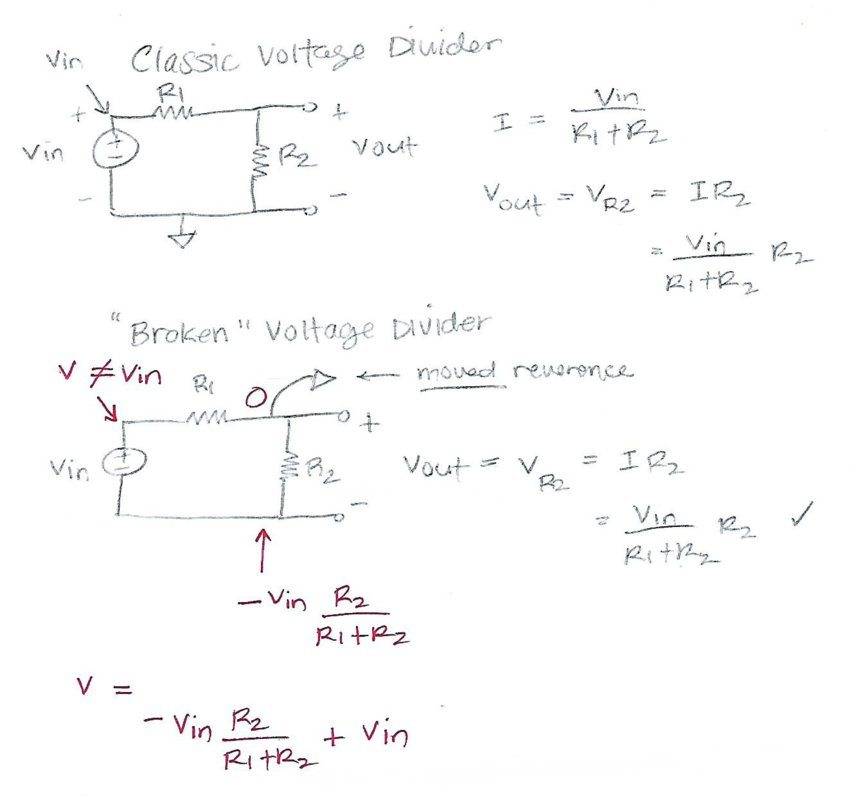 Classic Voltage Divider
Vin
R1
+ +
Vin R2 Vout
- -
I = Vin / R1+R2
Vout = VR2 = IR2
= Vin / R1+R2 R2
"Broken" Voltage Divider
V ≠ Vin
R1 0 ← moved reverence
+
Vin R2
-
Vout = VR2 = IR2
= Vin / R1+R2 R2 ✓
-Vin R2 / R1+R2
V =
-Vin R2 / R1+R2 + Vin